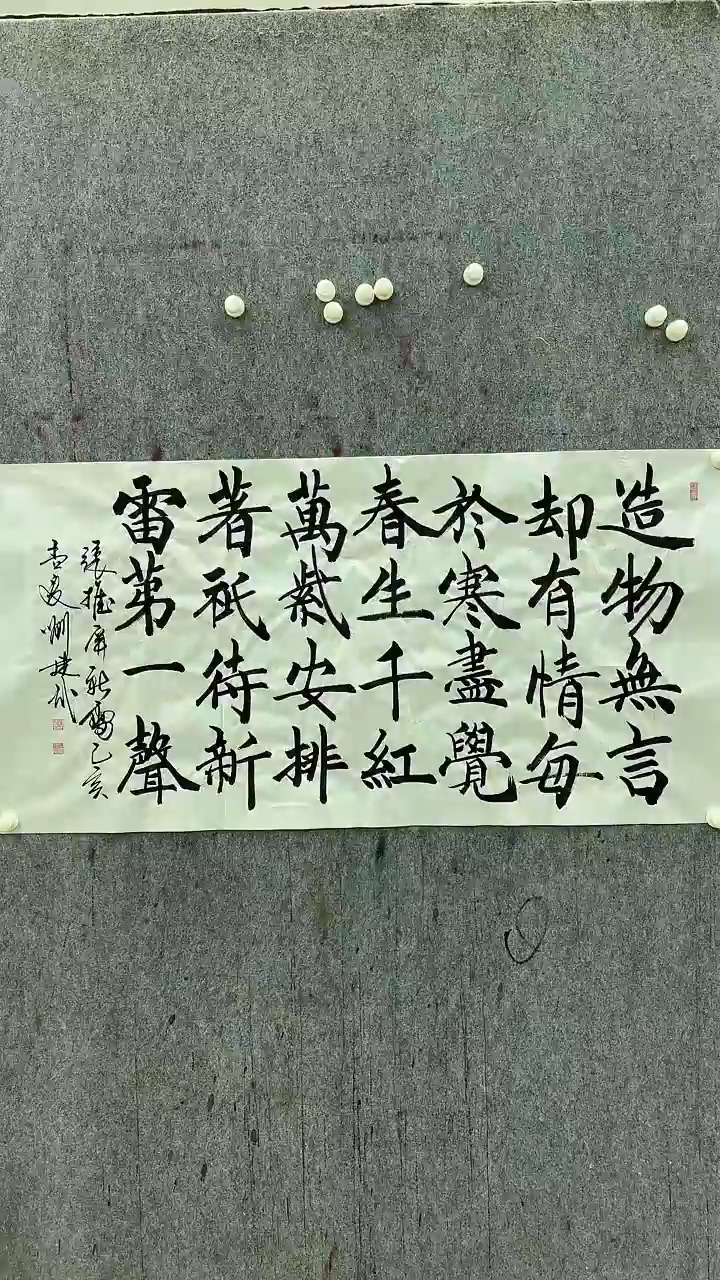 造物無言
却有情每
於寒盡覺
春生千紅
萬紫安排
著祇待新
雷第一聲
張維屏新雷乙亥